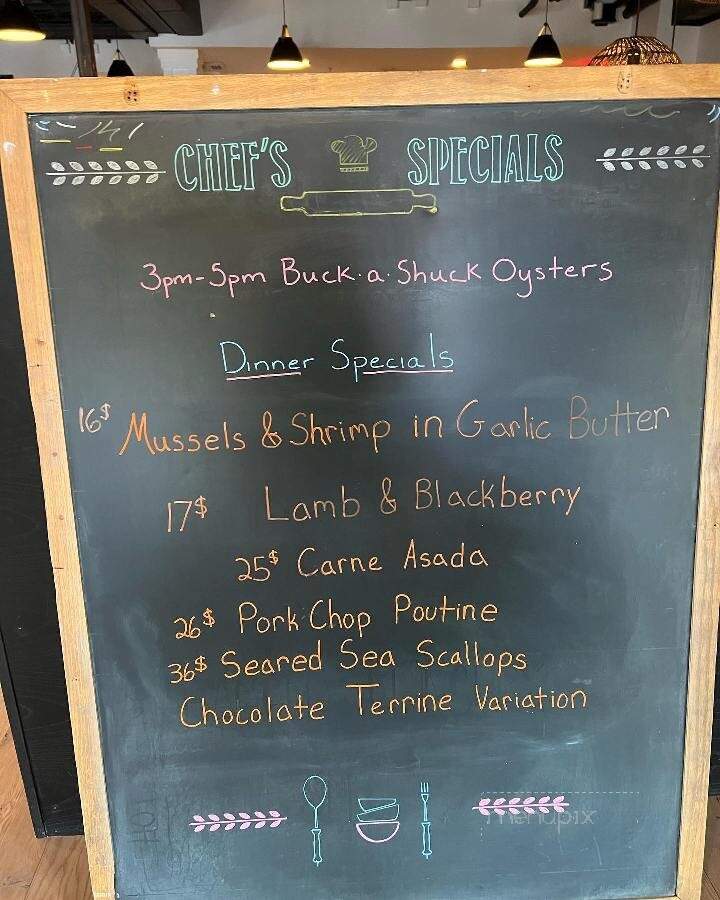 CHEF'S SPECIALS
3pm-5pm Buck·a·Shuck Oysters
Dinner Specials
16$ Mussels & Shrimp in Garlic Butter
17$ Lamb & Blackberry
25$ Carne Asada
26$ Pork Chop Poutine
36$ Seared Sea Scallops
Chocolate Terrine Variation
menupix